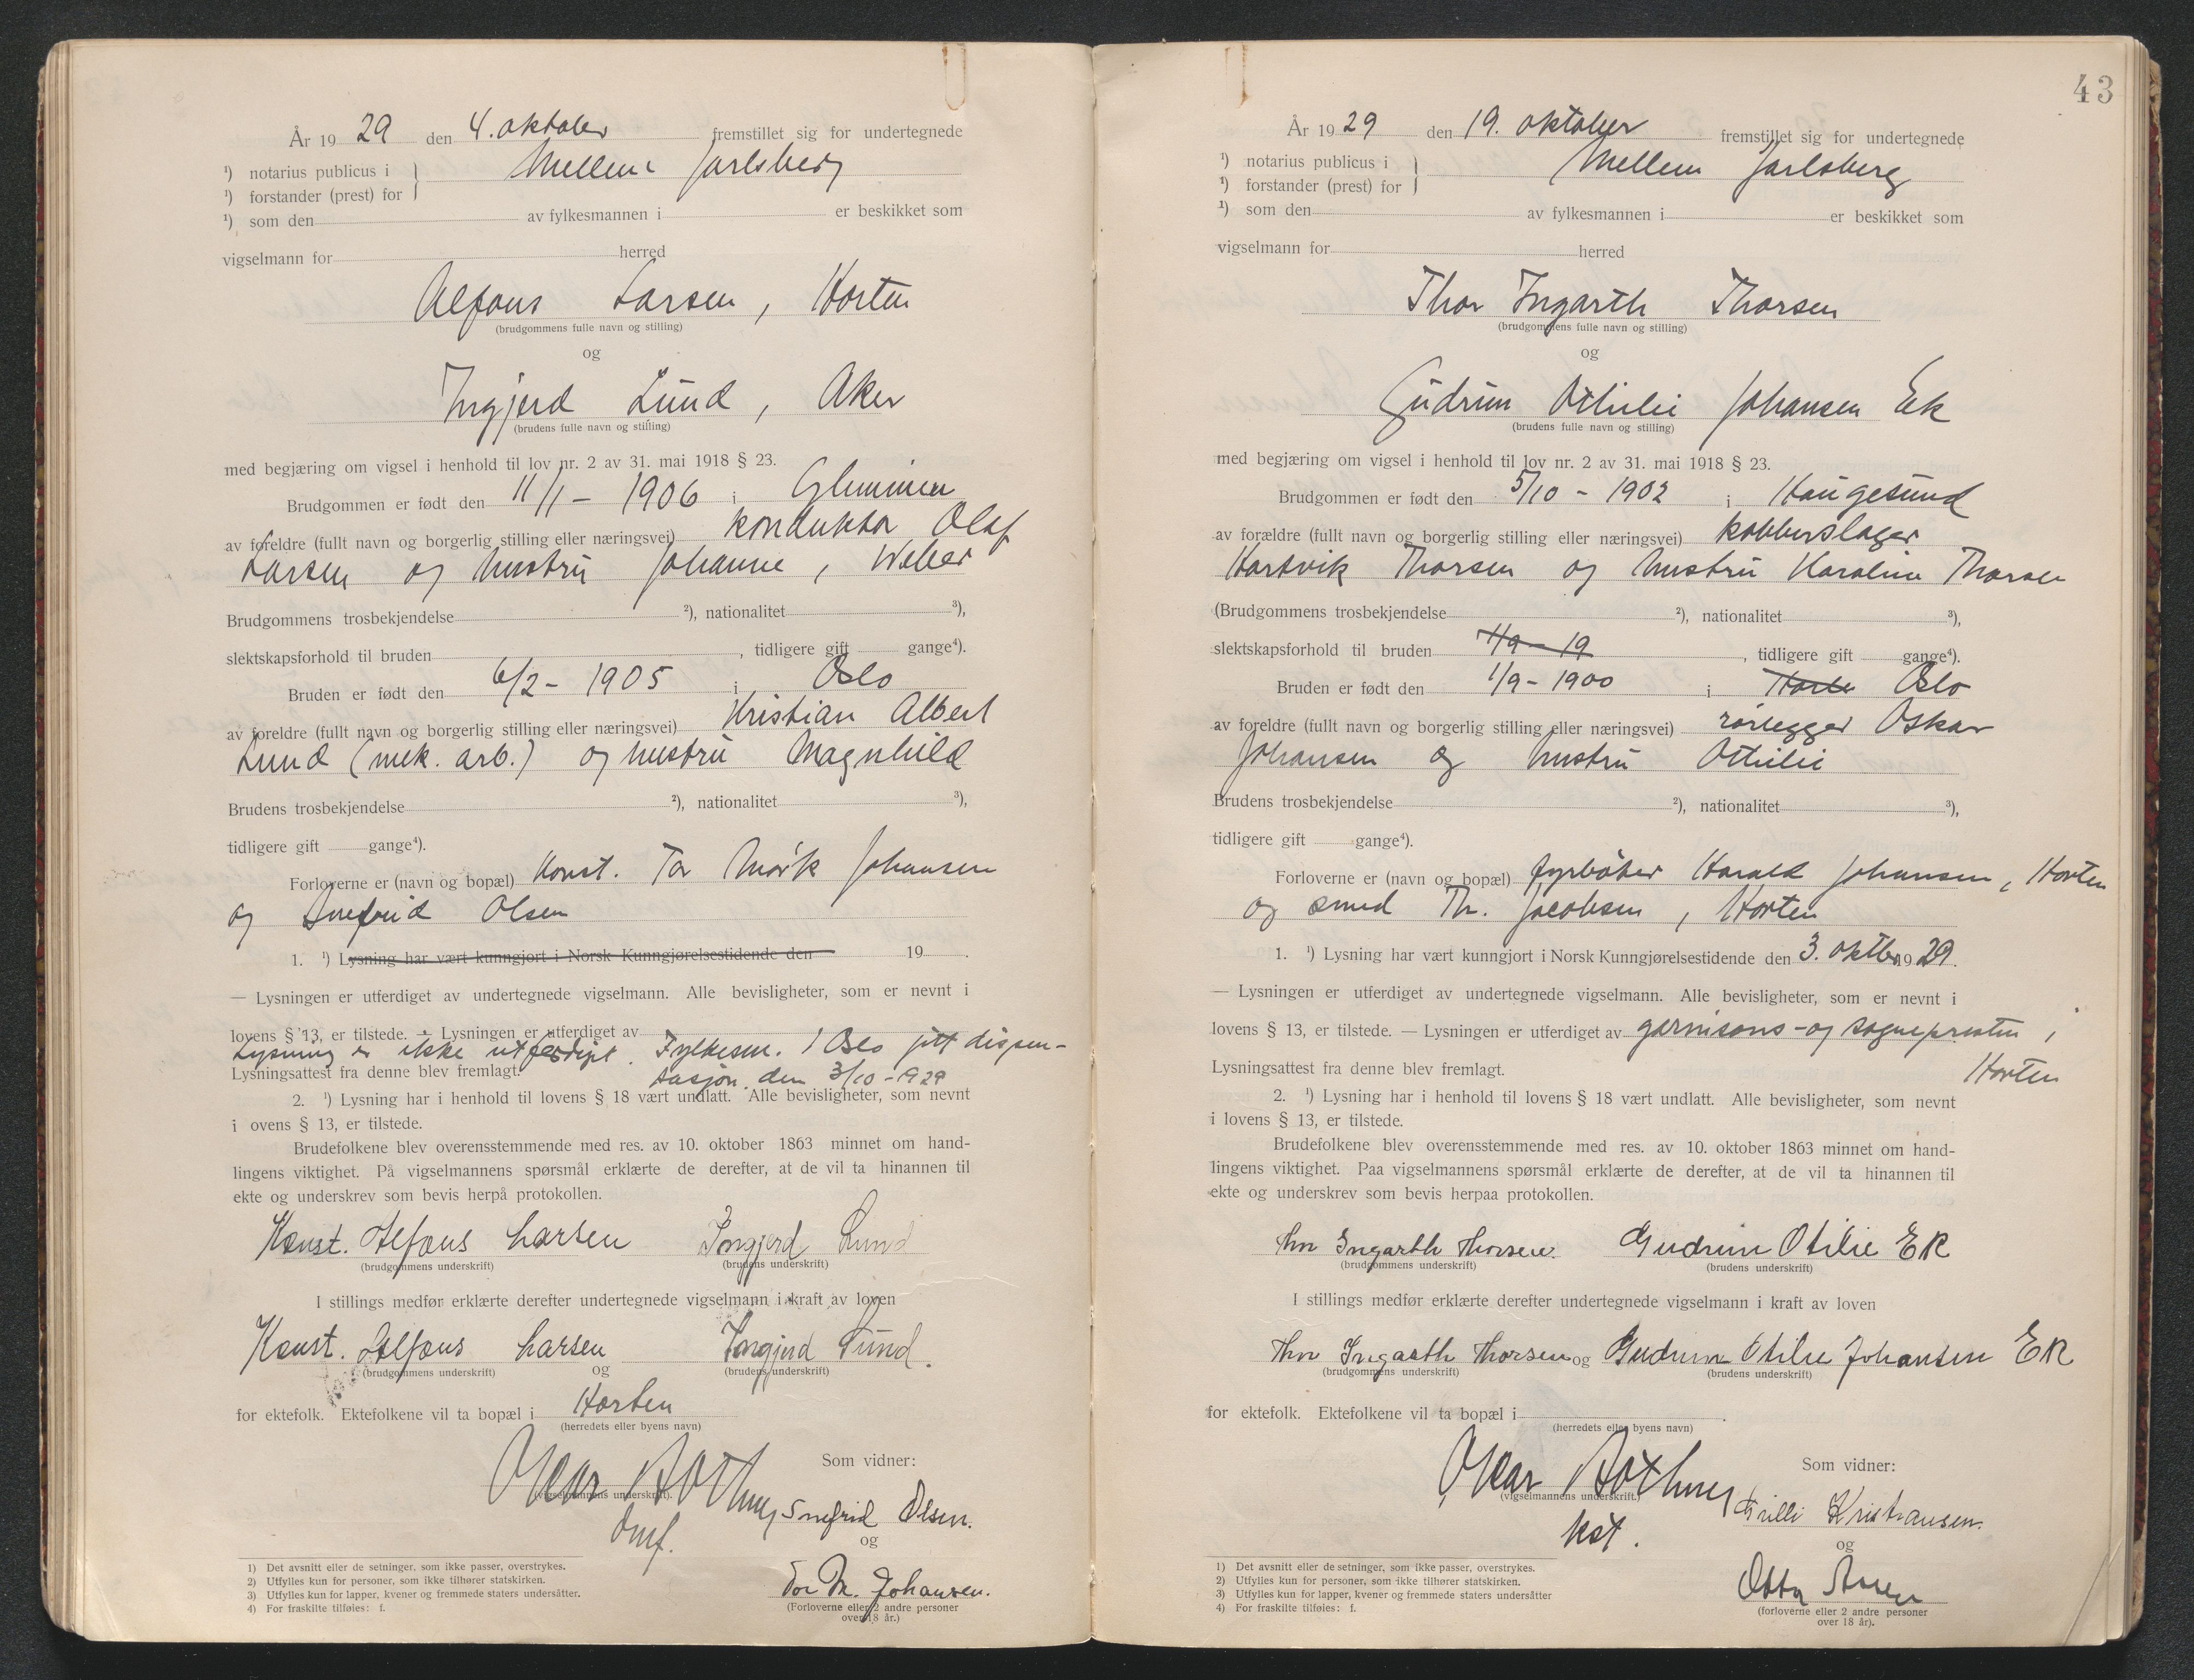 År 19 29 den 4. oktober fremstillet sig for undertegnede
¹) notarius publicus i
Mellem Jarlsberg
¹) forstander (prest) for
¹) som den av fylkesmannen i er beskikket som
vigselmann for herred
Alfons Larsen, Horten
(brudgommens fulle navn og stilling)
og
Ingjerd Lund, Aker
(brudens fulle navn og stilling)
med begjæring om vigsel i henhold til lov nr. 2 av 31. mai 1918 § 23.
Brudgommen er født den 11/1 - 1906 i Glemmen
av foreldre (fullt navn og borgerlig stilling eller næringsvei) konduktør Olaf
Larsen og hustru Johanne,
Brudgommens trosbekjendelse ²), nationalitet ³),
slektskapsforhold til bruden , tidligere gift gange⁴).
Bruden er født den 6/2 - 1905 i Oslo
av foreldre (fullt navn og borgerlig stilling eller næringsvei) Kristian Albert
Lund (mek. arb.) og hustru Magnhild
Brudens trosbekjendelse ²), nationalitet ³),
tidligere gift gange⁴).
Forloverne er (navn og bopæl) Konst. Tor Mørk Johansen
og Snefrid Olsen
1. ¹) Lysning har vært kunngjort i Norsk Kunngjørelsestidende den 19 .
— Lysningen er utferdiget av undertegnede vigselmann. Alle bevisligheter, som er nevnt i
lovens § 13, er tilstede. — Lysningen er utferdiget av
Lysning er ikke utferdiget. Fylkesm. i Oslo gitt dispen-
Lysningsattest fra denne blev fremlagt.
sasjon den 3/10 - 1929
2. ¹) Lysning har i henhold til lovens § 18 vært undlatt. Alle bevisligheter, som nevnt
i ovens § 13, er tilstede.
Brudefolkene blev overensstemmende med res. av 10. oktober 1863 minnet om hand-
lingens viktighet. På vigselmannens spørsmål erklærte de derefter, at de vil ta hinannen til
ekte og underskrev som bevis herpå protokollen.
Konst. Alfons Larsen Ingjerd Lund
(brudgommens underskrift) (brudens underskrift)
I stillings medfør erklærte derefter undertegnede vigselmann i kraft av loven
Konst. Alfons Larsen og Ingjerd Lund.
(brudgommens underskrift) (brudens underskrift)
for ektefolk. Ektefolkene vil ta bopæl i Horten
(herredets eller byens navn)
Som vidner:
Oskar
(vigselmannens underskrift).
Snefrid Olsen.
og
Tor M. Johansen.
(Forloverne eller 2 andre personer
over 18 år.)
1) Det avsnitt eller de setninger, som ikke passer, overstrykes.
2) Utfylles kun for personer, som ikke tilhører statskirken.
3) Utfylles kun for lapper, kvener og fremmede staters undersåtter.
4) For fraskilte tilføies: f.
43
År 19 29 den 19. oktober fremstillet sig for undertegnede
¹) notarius publicus i
Mellem Jarlsberg
¹) forstander (prest) for
¹) som den av fylkesmannen i er beskikket som
vigselmann for herred
Thor Ingarth Thorsen
(brudgommens fulle navn og stilling)
og
Gudrun Othilie Johansen Ek
(brudens fulle navn og stilling)
med begjæring om vigsel i henhold til lov nr. 2 av 31. mai 1918 § 23.
Brudgommen er født den 5/10 - 1902 i Haugesund
av forældre (fullt navn og borgerlig stilling eller næringsvei) kobberslager
Hartvik Thorsen og hustru Karoline Thorsen
(Brudgommens trosbekjendelse ²), nationalitet ³),
slektskapsforhold til bruden 1/9 - 19 , tidligere gift gange⁴).
Bruden er født den 1/9 - 1900 i Horten Oslo
av foreldre (fullt navn og borgerlig stilling eller næringsvei) rørlegger Oskar
Johansen og hustru Othilie
Brudens trosbekjendelse ²), nationalitet ³),
tidligere gift gange⁴).
Forloverne er (navn og bopæl) fyrbøter Harald Johansen, Horten
og smed Th. Jacobsen, Horten
1. ¹) Lysning har vært kunngjort i Norsk Kunngjørelsestidende den 3. oktbr 19 29.
— Lysningen er utferdiget av undertegnede vigselmann. Alle bevisligheter, som er nevnt i
lovens § 13, er tilstede. — Lysningen er utferdiget av garnisons- og sognepresten i
Lysningsattest fra denne blev fremlagt. Horten
2. ¹) Lysning har i henhold til lovens § 18 vært undlatt. Alle bevisligheter, som nevnt
i lovens § 13, er tilstede.
Brudefolkene blev overensstemmende med res. av 10. oktober 1863 minnet om hand-
lingens viktighet. Paa vigselmannens spørsmål erklærte de derefter, at de vil ta hinannen til
ekte og underskrev som bevis herpaa protokollen.
Thor Ingarth Thorsen. Gudrun Otilie Ek
(brudgommens underskrift) (brudens underskrift)
I stillings medfør erklærte derefter undertegnede vigselmann i kraft av loven
Thor Ingarth Thorsen og Gudrun Otilie Johansen Ek
(brudgommens underskrift) (brudens underskrift)
for ektefolk. Ektefolkene vil ta bopæl i .
(herredets eller byens navn)
Som vidner:
Oskar
(vigselmannens underskrift.)
kst.
Kristiansen.
og
Otto
(forloverne eller 2 andre personer
over 18 år).
1) Det avsnitt eller de setninger, som ikke passer, overstrykes.
2) Utfylles kun for personer, som ikke tilhører statskirken.
3) Utfylles kun for lapper, kvener og fremmede staters undersåtter
4) For fraskilte tilføies: f.